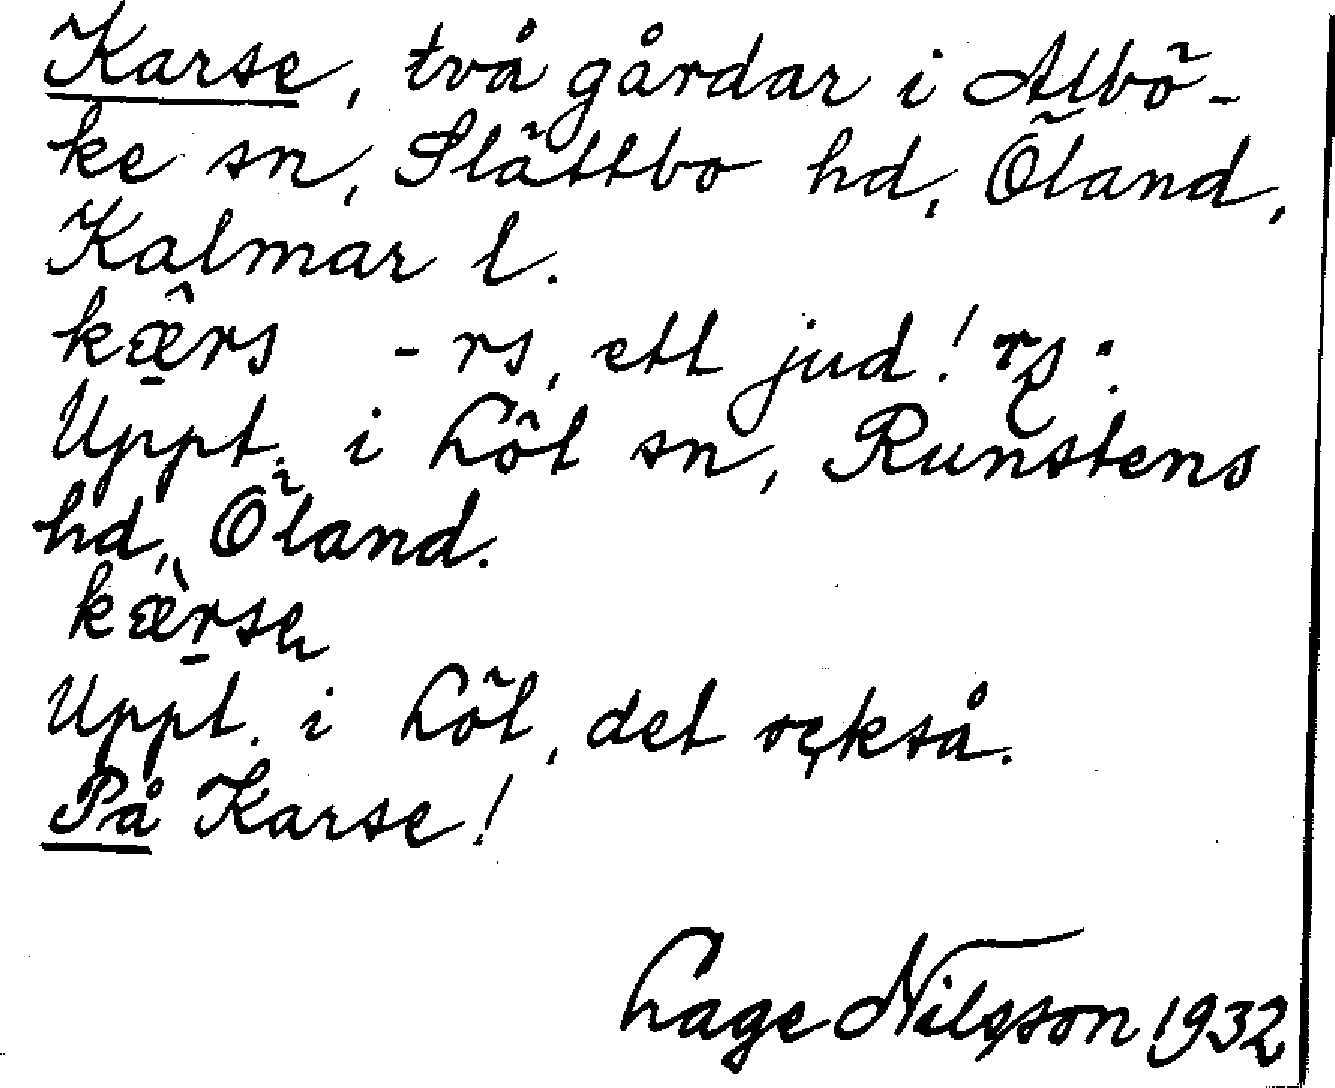 Karse, två gårdar i Albö-
ke sn, Slättbo hd, Öland,
Kalmar l.
kæ̂rs - rs, ett jud! rs:
Uppt. i Löt sn, Runstens
hd, Öland.
kæ̀rse
Uppt. i Löt, det också.
På Karse!
Lage Nilsson 1932